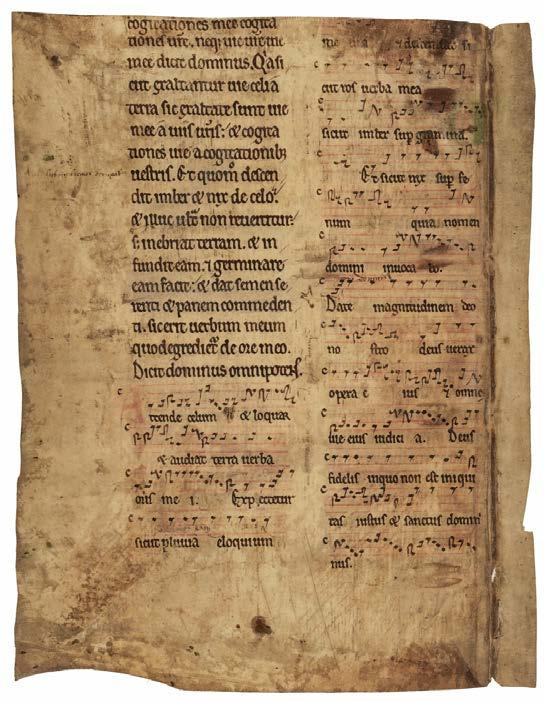 cogitationes mee cogita
tiones ur̄e. neq; uie ur̄e uie
mee dicit dominus. Q̇asi
cut exaltantur uie celi a
terra sic exaltate sunt uie
mee a uiis ur̄is: & cogita
tiones mee a cogitationib;
uestris. Et quom̄ descen
dit imber & nix de celo.
& illuc ult̄ non reuertitur:
s; inebriat terram. & in
fundit eam. ⁊ germinare
eam facit: & dat semen se
renti & panem commeden
ti. sic erit uerbum meum
quod egredict᷑ de ore meo.
Dicit dominus omnipotens.
ttende celum & loquar
& audiat terra uerba
oris me i. Expectetur
sicut pluuia eloquium
me um ⁊ descendāt si
cut ros uerba mea
sicut imber sup gramina.
Et sicut nix sup fe
num quia nomen
domini inuoca bo.
Date magnitudinem deo
no stro deus uerax
opera e ius ⁊ omnes
uie eius iudici a. Deus
fidelis in quo non est iniqui
tas iustus & sanctus domi
nus.